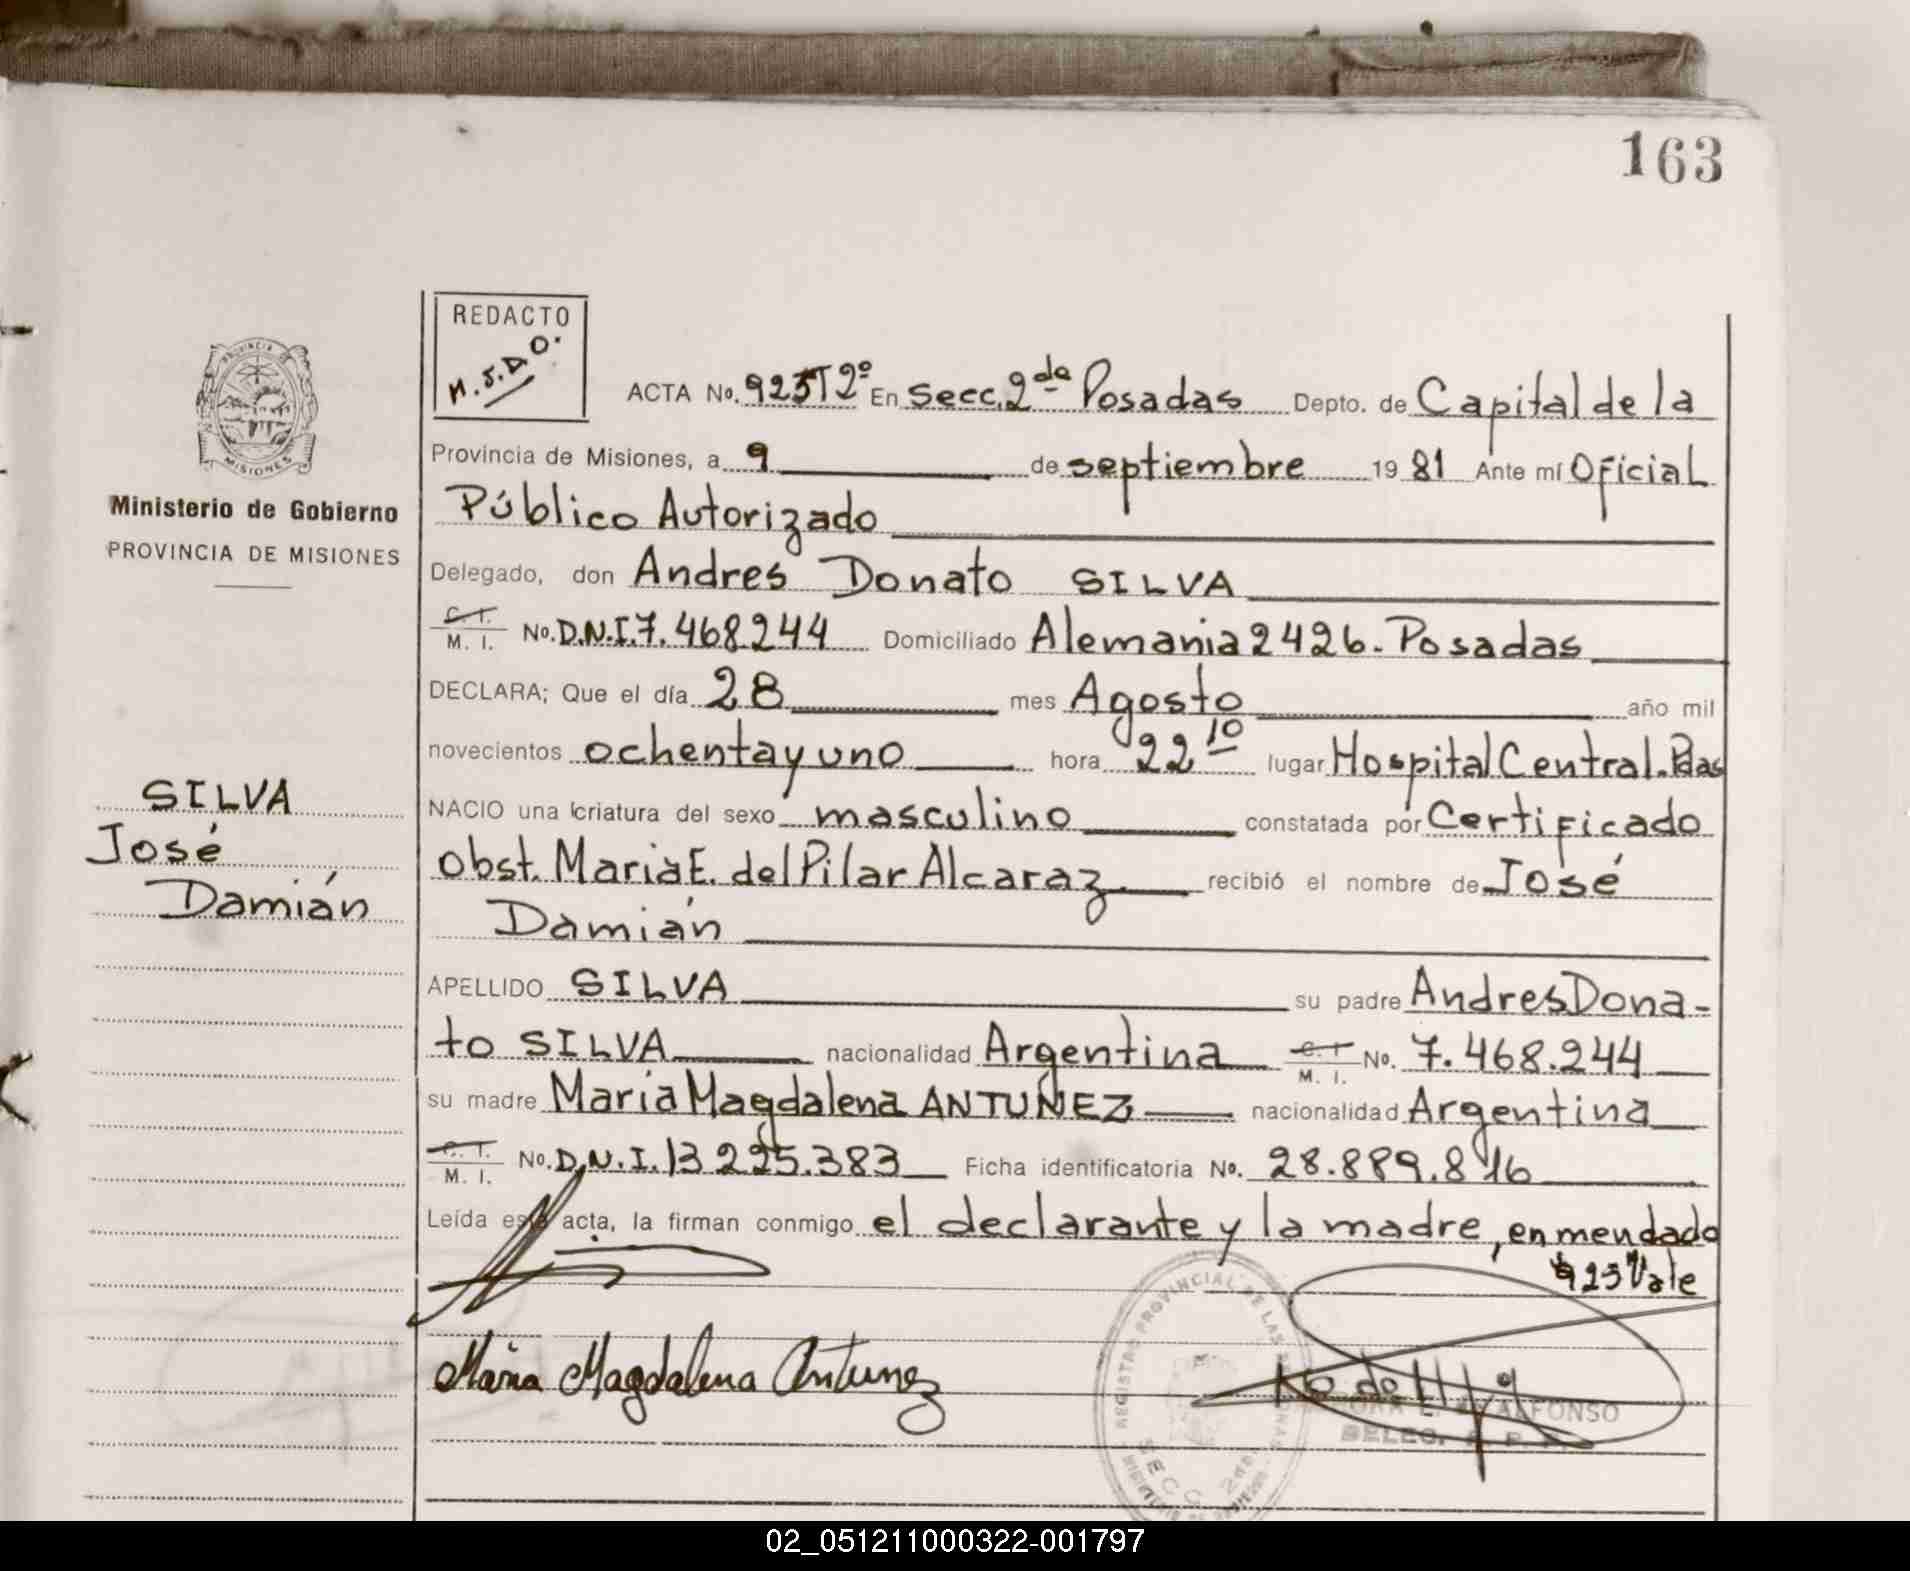 163
REDACTO
M.S.D O.
ACTA No. 925 T 2º En Secc. 2da Posadas Depto. de Capital de la
PROVINCIA DE
MISIONES
Provincia de Misiones, a 9 de septiembre 1981 Ante mí Oficial
Ministerio de Gobierno
PROVINCIA DE MISIONES
Público Autorizado
Delegado, don Andres Donato SILVA
C. I. M. I. No. D.N.I. 7.468.244 Domiciliado Alemania 2426. Posadas
DECLARA; Que el día 28 mes Agosto año mil
novecientos ochenta y uno hora 22 10 lugar Hospital Central. Pdas
SILVA
José
Damián
NACIO una criatura del sexo masculino constatada por Certificado
obst. Maria E. del Pilar Alcaraz recibió el nombre de José
Damián
APELLIDO SILVA su padre Andres Dona-
to SILVA nacionalidad Argentina C. I. M. I. No. 7.468.244
su madre María Magdalena ANTUÑEZ nacionalidad Argentina
C. I. M. I. No. D.N.I. 13.225.383 Ficha identificatoria No. 28.889.816
Leída esta acta, la firman conmigo el declarante y la madre, enmendado
925 Vale
Maria Magdalena Antunez
PROVINCIAL DE LAS
SECC 2da.
ALFONSO
DELEG.
02_051211000322-001797